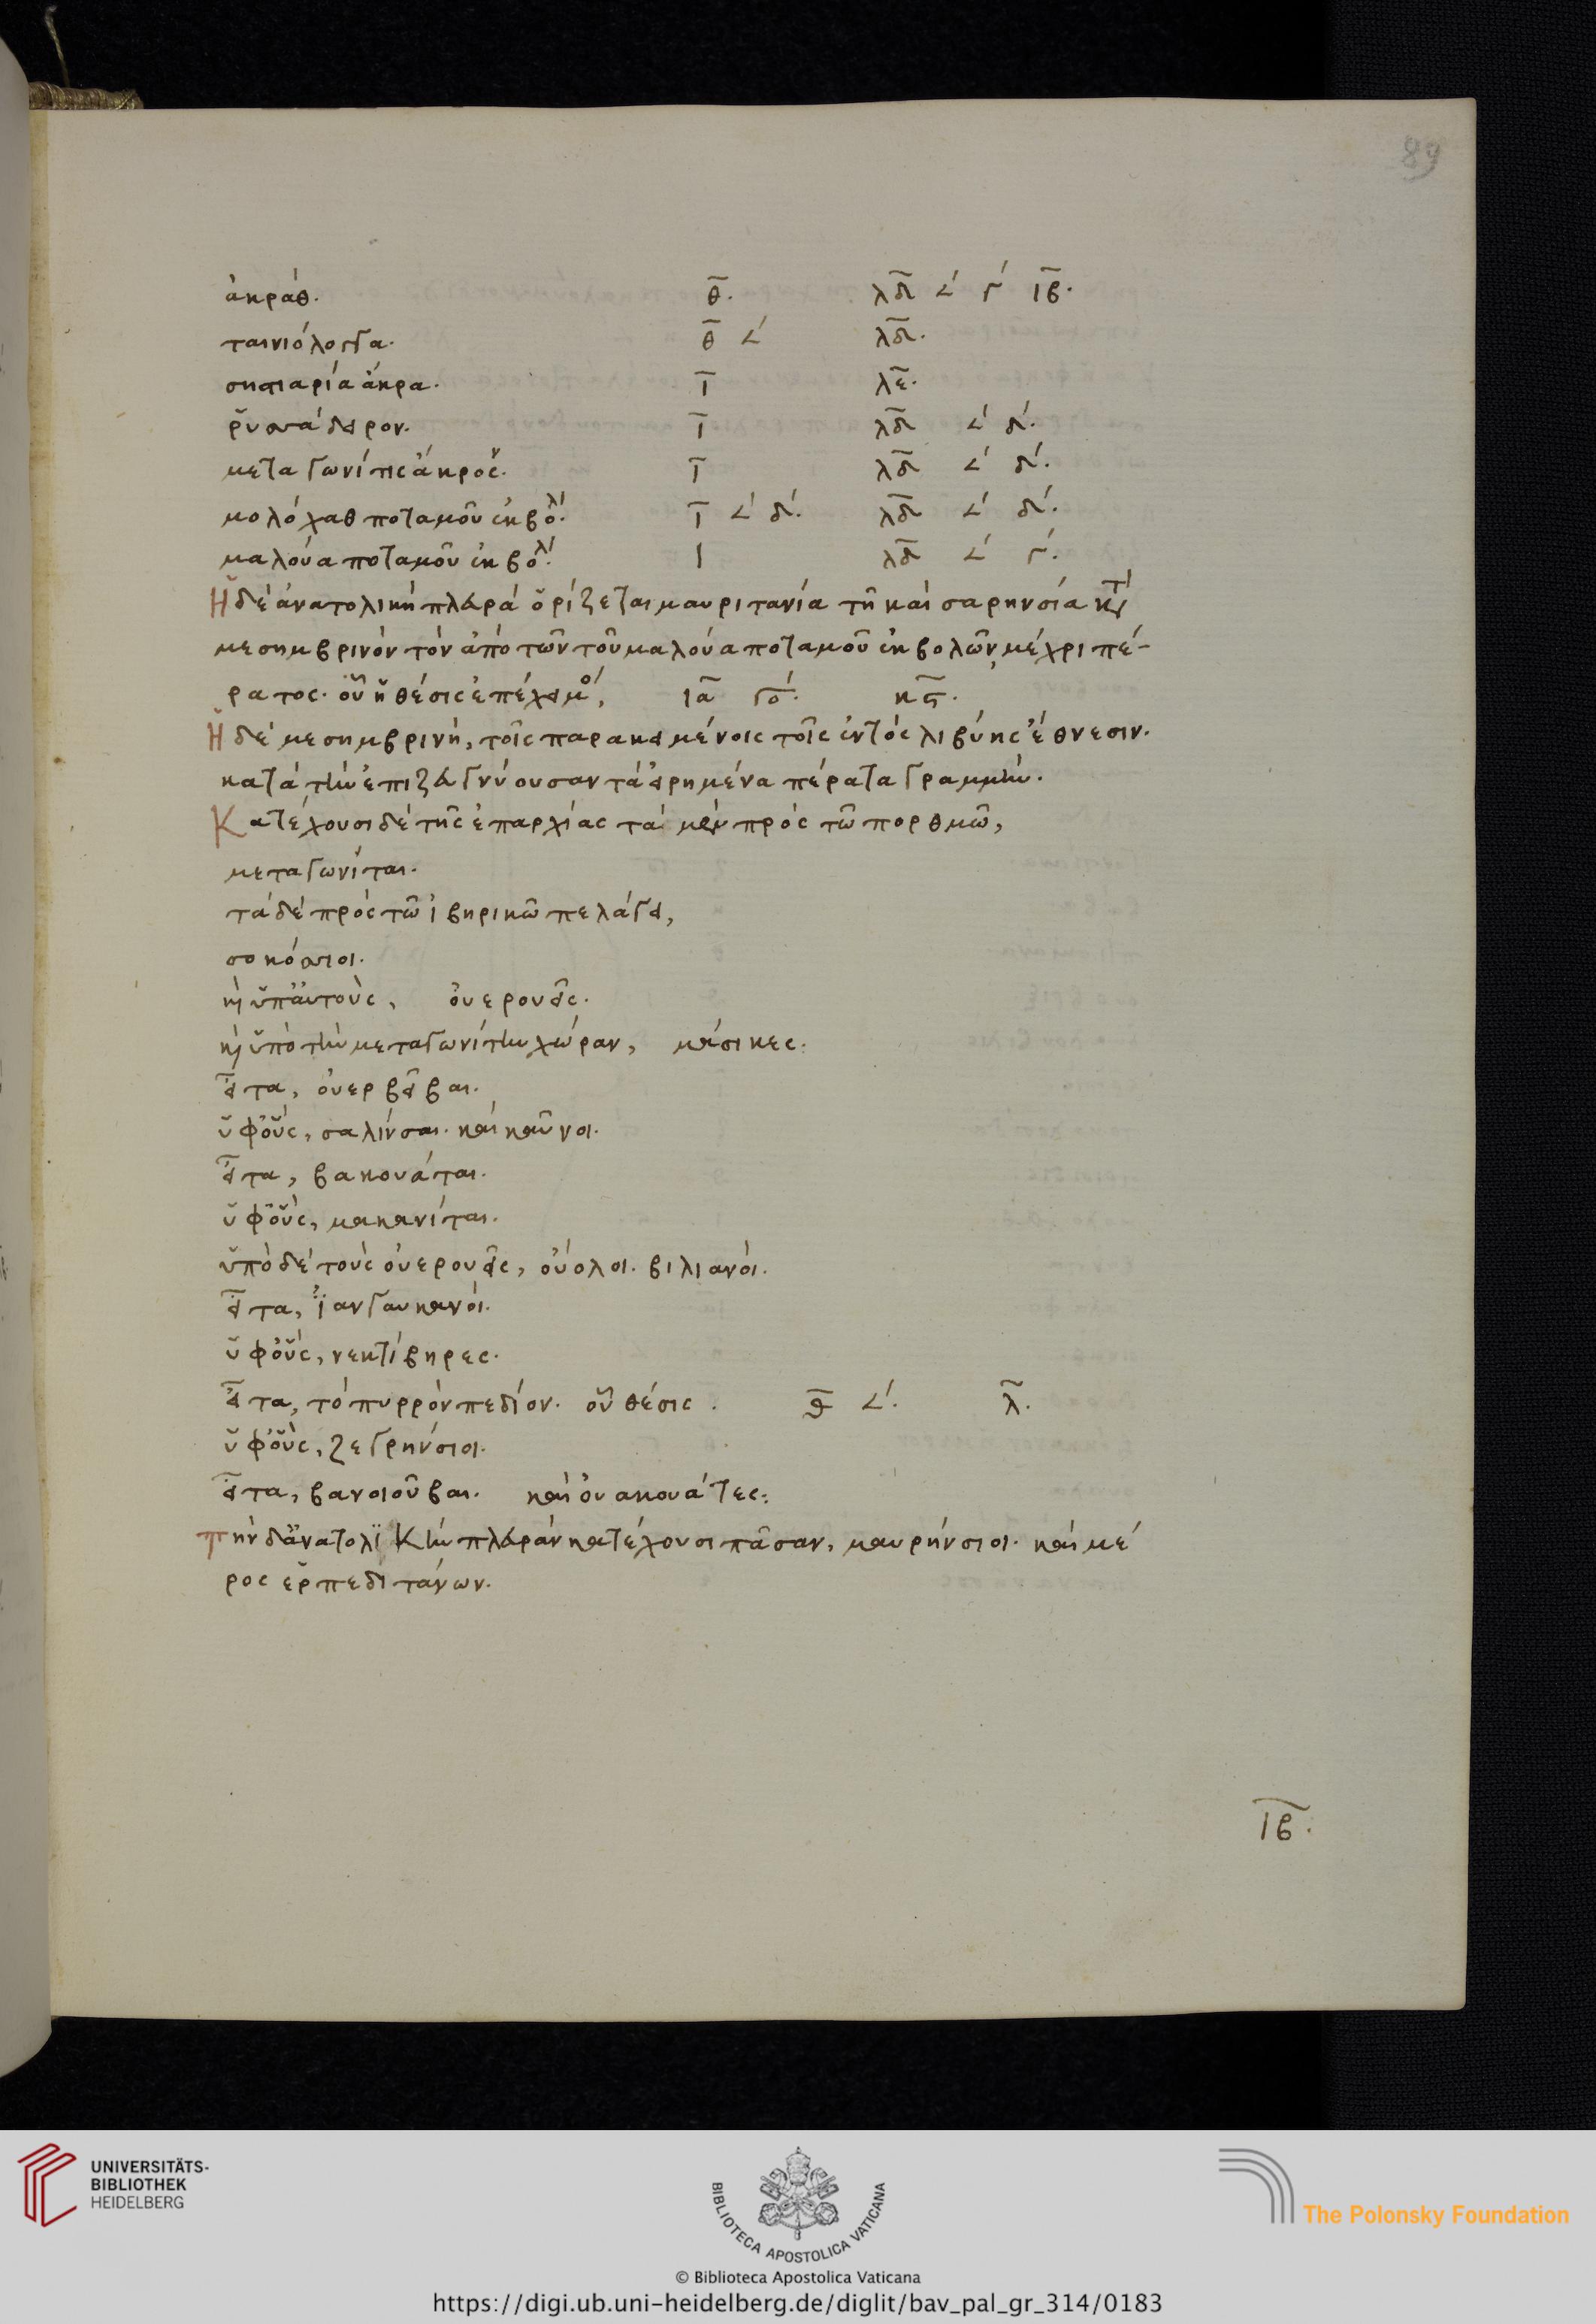 89
ἀκράθ. θ̅. λδ̅ ∠΄ γ΄ ιβ̅.
ταινιόλογγα. θ̅ ∠΄ λδ̅.
σηστιαρία ἄκρα. ι̅ λε̅.
ῥυσσάδειρον. ι̅ λδ̅ ∠΄ δ΄.
μεταγωνίτις ἄκρος. ι̅ λδ̅ ∠΄ δ΄.
μολόχαθ ποταμοῦ ἐκβολ΄. ι̅ ∠΄ δ΄. λδ̅ ∠΄ δ΄.
μαλούα ποταμοῦ ἐκβολ΄. ι λδ̅ ∠΄ γ΄.
Ἡ δὲ ἀνατολικὴ πλευρὰ ὁρίζεται μαυριτανία τῆ καισαρηνσία κτ΄
μεσημβρινὸν τὸν ἀπὸ τῶν τοῦ μαλούα ποταμοῦ ἐκβολῶν, μέχρι πέ-
ρατος. οὗ ἡ θέσις ἐπέχει μο΄, ια̅ γο΄. κϛ̅.
Ἡ δὲ μεσημβρινὴ, τοῖς παρακειμένοις τοῖς ἐντὸς λιβύης ἔθνεσιν.
κατὰ τὴν ἐπιζευγνύουσαν τὰ εἰρημένα πέρατα γραμμήν.
Κατέχουσι δὲ τῆς ἐπαρχίας τὰ μὲν πρὸς τῶ πορθμῶ,
μεταγωνίται.
τὰ δὲ πρὸς τῶ ἰβηρικῶ πελάγει,
σοκόσσιοι.
κὶ ὑπ' ἀυτοὺς, ὀυερουεῖς.
κὶ ὑπὸ τὴν μεταγωνίτην χώραν, μάσικες:
εἶτα, ὀυερβεῖβαι.
ὑφ' οὓς, σαλίνσαι. καὶ καῦνοι.
εἶτα, βακουάται.
ὑφ' οὓς, μακανίται.
ὑπὸ δὲ τοὺς ὀυερουεῖς, οὐόλοι. βιλιανοὶ.
εἶτα, ἰανγαυκανοὶ.
ὑφ' οὓς, νεκτίβηρες.
εἶτα, τὸ πυρρὸν πεδίον. οὗ θέσις. θ̅ ∠΄. λ̅.
ὑφ' οὓς, ζεγρήνσιοι.
εἶτα, βανοιοῦβαι. καὶ ὀυακουάτες:
τὴν δ' ἀνατολϊκὴν πλευρὰν κατέχουσι πᾶσαν, μαυρήνσιοι. καὶ μέ
ρος ἑρπεδιτάνων.
ιβ̅.
UNIVERSITÄTS-
BIBLIOTHEK
HEIDELBERG
BIBLIOTECA APOSTOLICA VATICANA
The Polonsky Foundation
© Biblioteca Apostolica Vaticana
https://digi.ub.uni-heidelberg.de/diglit/bav_pal_gr_314/0183